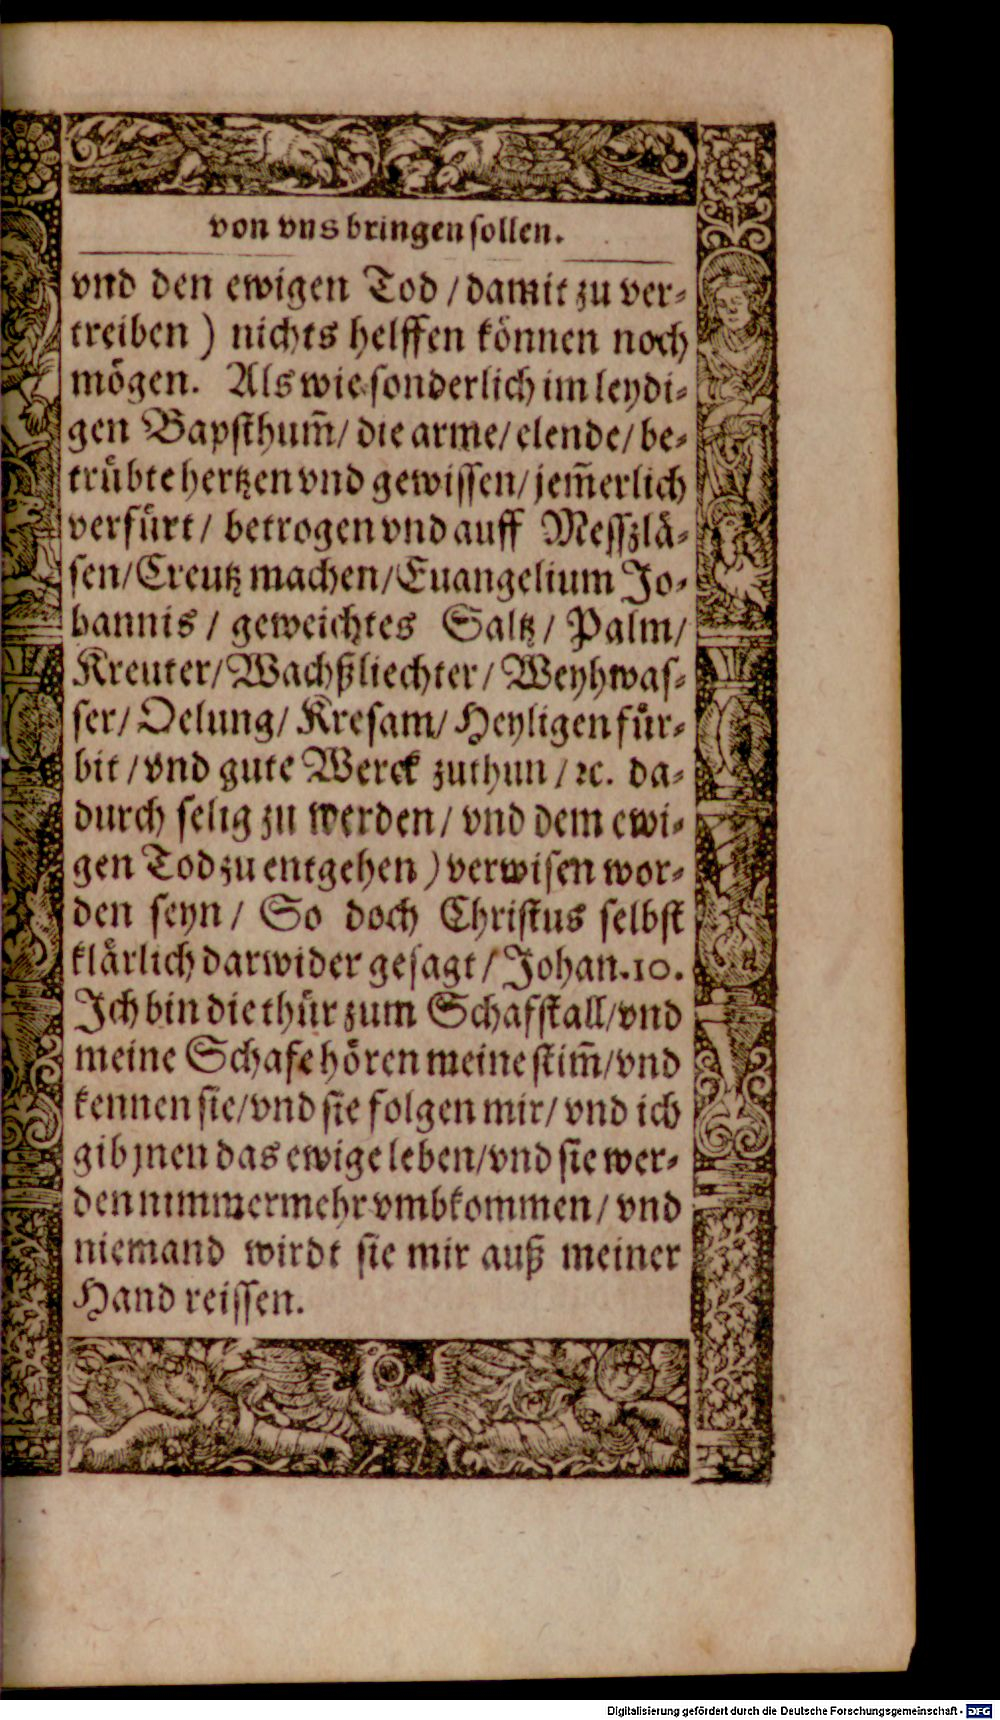 von vns bringen sollen.
vnd den ewigen Tod / damit zu ver⸗
treiben ) nichts helffen können noch
mögen. Als wie sonderlich im leydi⸗
gen Bapsthum̃ / die arme / elende / be⸗
trübte hertzen vnd gewissen / jem̃erlich
verfürt / betrogen vnd auff Messzlä⸗
sen / Creutz machen / Euangelium Jo⸗
hannis / geweichtes Saltz / Palm /
Kreuter / Wachßliechter / Weyhwas⸗
ser / Oelung / Kresam / Heyligen für⸗
bit / vnd gute Werck zuthun / ꝛc. da⸗
durch selig zu werden / vnd dem ewi⸗
gen Tod zu entgehen ) verwisen wor⸗
den seyn / So doch Christus selbst
klärlich darwider gesagt / Johan. 10.
Ich bin die thür zum Schafstall / vnd
meine Schafe hören meine stim̃ / vnd
kennen sie / vnd sie folgen mir / vnd ich
gib jnen das ewige leben / vnd sie wer⸗
den nimmermehr vmbkommen / vnd
niemand wirdt sie mir auß meiner
Hand reissen.
Digitalisierung gefördert durch die Deutsche Forschungsgemeinschaft - DFG